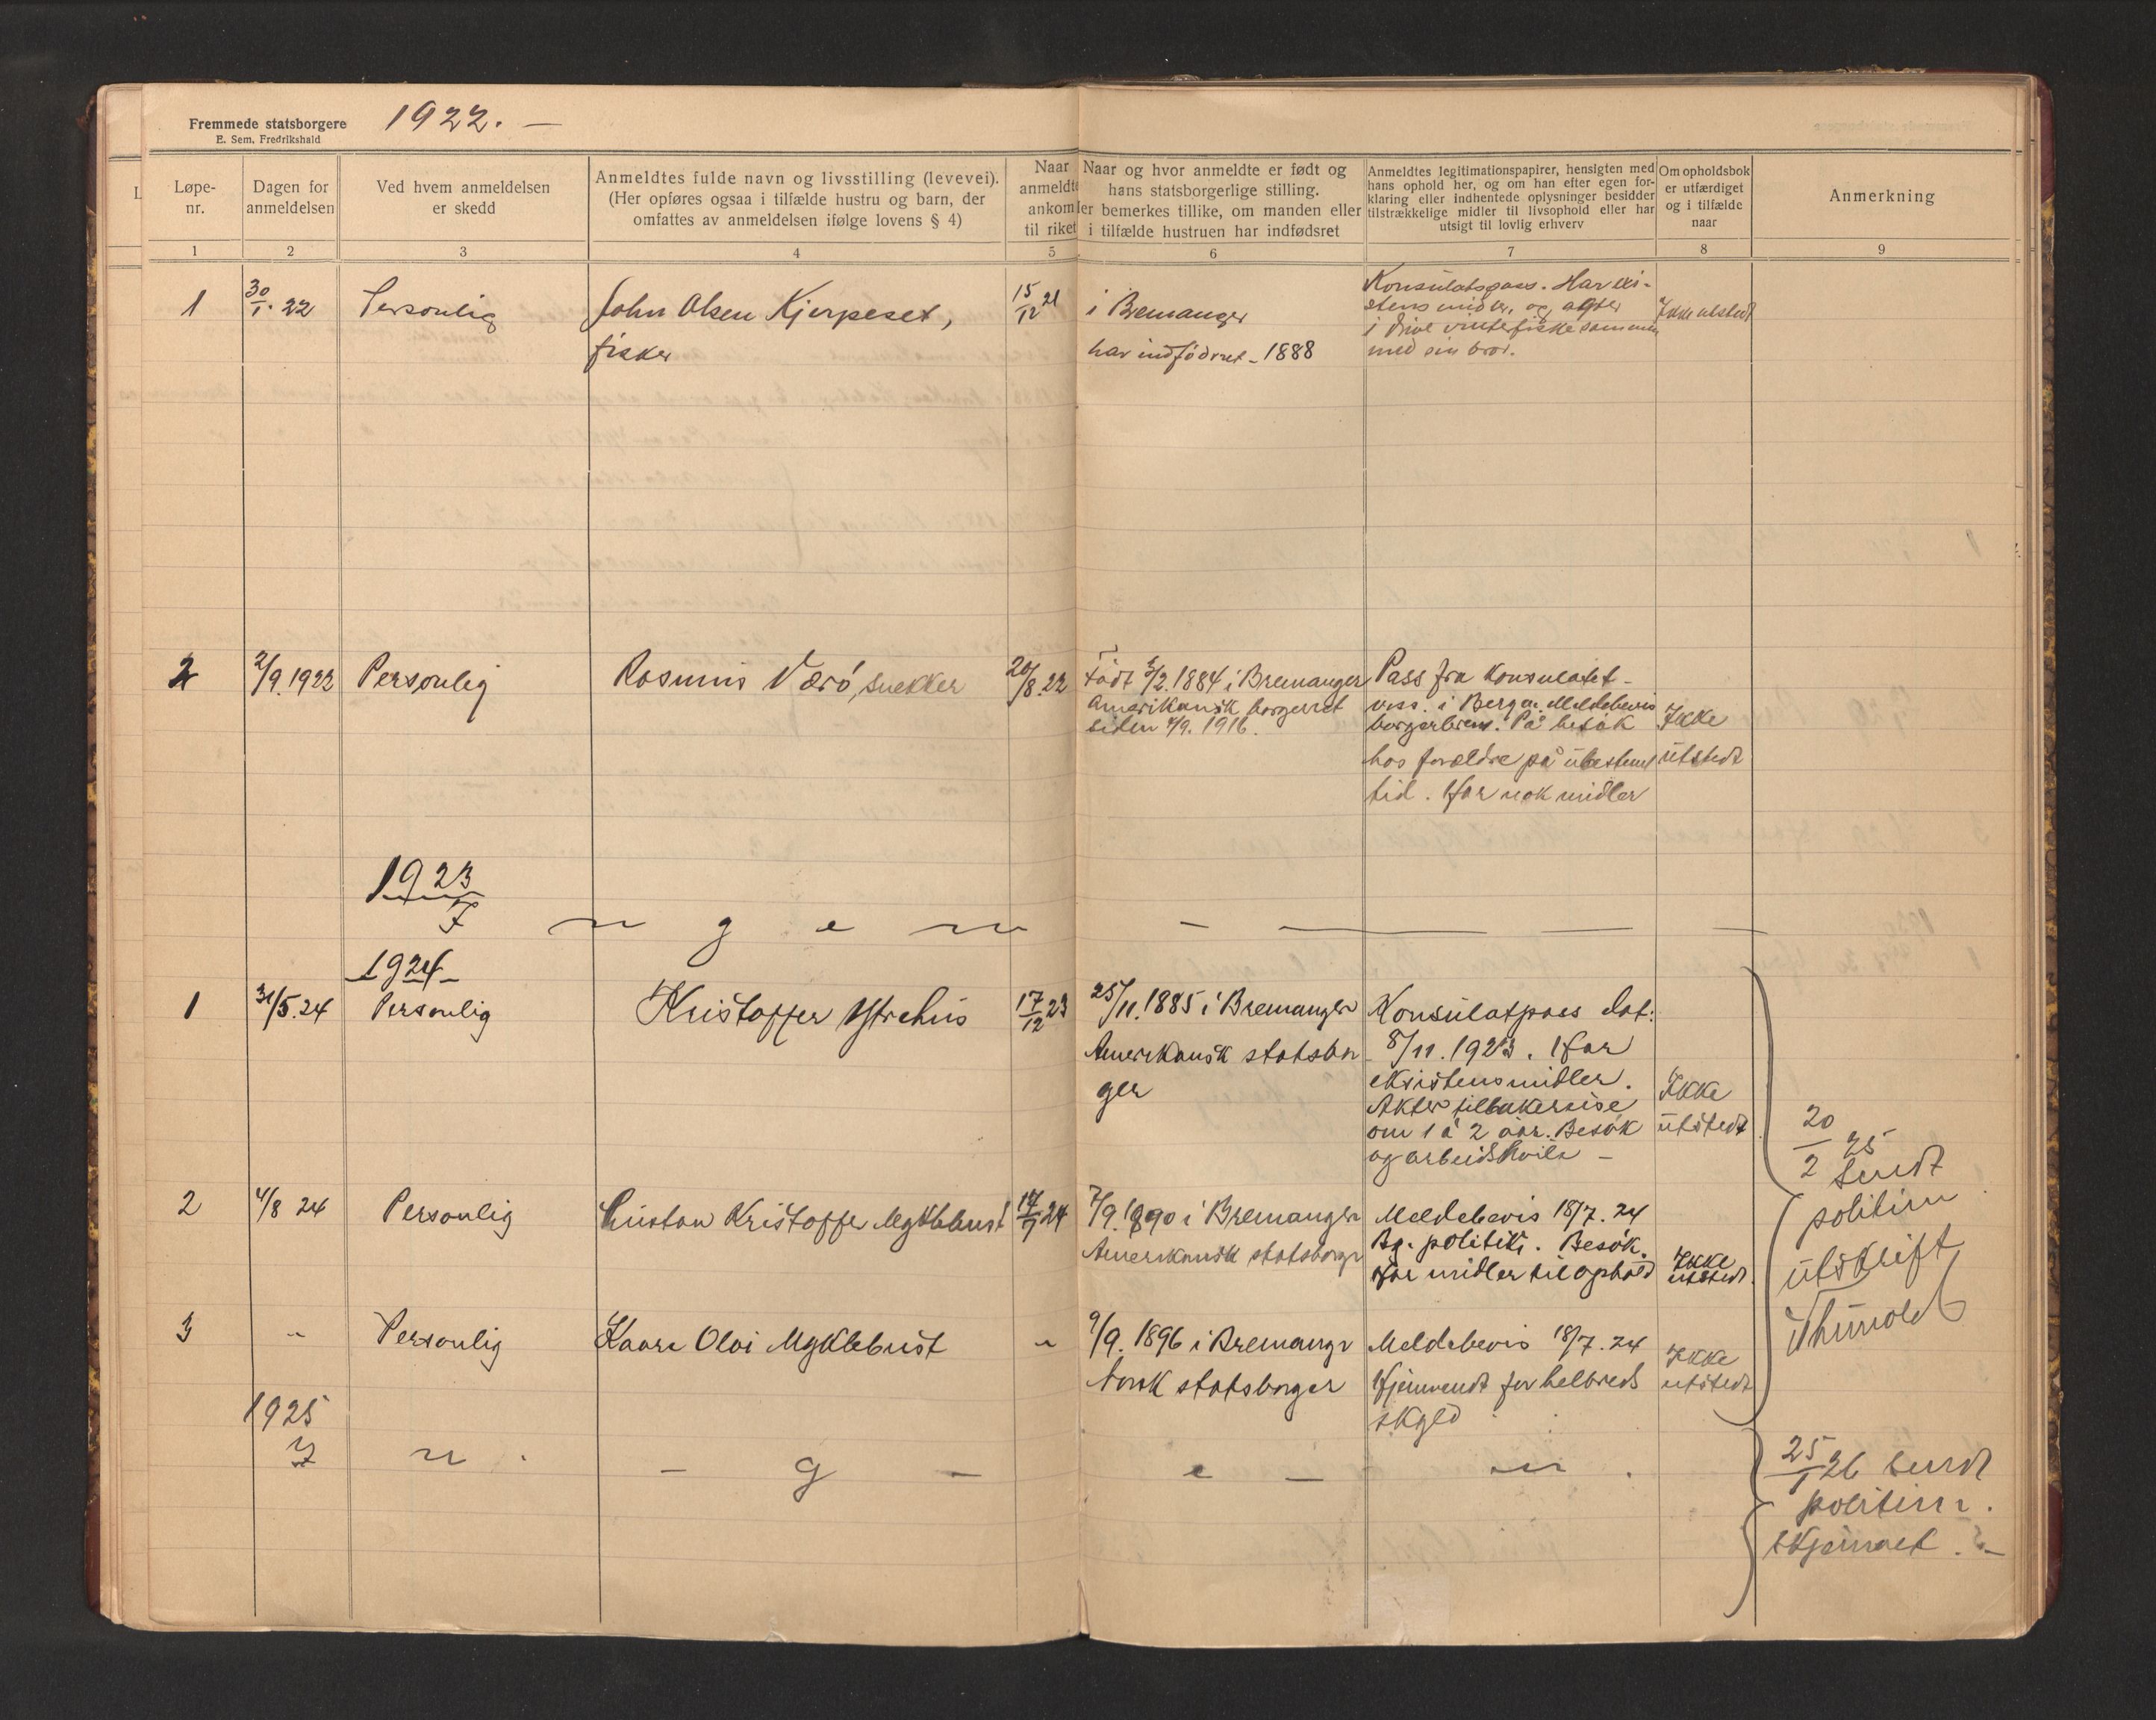 Fremmede statsborgere
E. Sem, Fredrikshald
1922. —
Løpe-
nr.
Dagen for
anmeldelsen
Ved hvem anmeldelsen
er skedd
Anmeldtes fulde navn og livsstilling (levevei).
(Her opføres ogsaa i tilfælde hustru og barn, der
omfattes av anmeldelsen ifølge lovens § 4)
Naar
anmeldte
ankom
til riket
Naar og hvor anmeldte er født og
hans statsborgerlige stilling.
er bemerkes tillike, om manden eller
i tilfælde hustruen har indfødsret
Anmeldtes legitimationspapirer, hensigten med
hans ophold her, og om han efter egen for-
klaring eller indhentede oplysninger besidder
tilstrækkelige midler til livsophold eller har
utsigt til lovlig erhverv
Om opholdsbok
er utfærdiget
og i tilfælde
naar
Anmerkning
1 2 3 4 5 6 7 8 9
1
30/1. 22
Personlig
John Olsen Kjerpeset,
fisker
15/12 21
i Bremanger
har indfödsret - 1888
Konsulatspass. Har exi-
stensmidler, og agter
i drive vinterfiske sammen
med sin bror.
Ikke utstedt
2
2/9. 1922
Personlig
Rasmus Værö, snekker
20/8. 22
Födt 5/2. 1884 i Bremanger
Amerikansk borgerret
siden 2/9. 1916.
Pass fra Konsulatet -
viss. i Bergen. Meldebevis
borgerbrev. På besök
hos forældre på ubestemt
tid. Har nok midler
Ikke
utstedt
1923
I n g e n —
1924
1
31/5. 24
Personlig
Kristoffer Ytrehus
17/12 23
25/11. 1885 i Bremanger
Amerikansk statsbor
ger
Konsulatpass dat:
8/11. 1923. Har
eksistensmidler.
Akter tilbakereise
om 1 à 2 aar. Besök
og arbeidshvile —
Ikke
utstedt
20/2 25
Sendt
politim
utskrift
2
4/8 24
Personlig
Kristoffer Myklebust
24
7/9. 1890 i Bremanger
Amerikansk statsborger
Meldebevis 18/7. 24
Bg. politik. Besök.
Har midler til ophold
Ikke
utstedt.
3
"
Personlig
Kaare Olai Myklebust
"
9/9. 1896 i Bremanger
Norsk statsborger
Meldebevis 18/7. 24
Hjemvendt for helbreds
skyld
Ikke
utstedt
1925
I n . — g — e — n .
25/1 26 sendt
politim.
skjemaet. —